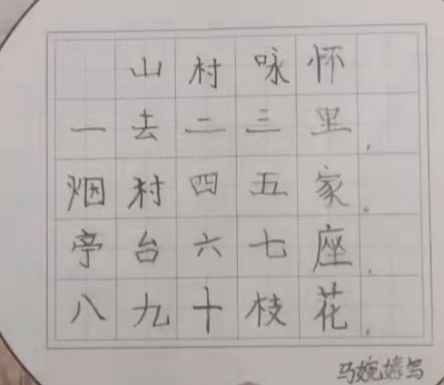 山村咏怀
一去二三里，
烟村四五家。
亭台六七座，
八九十枝花。
马婉婷写